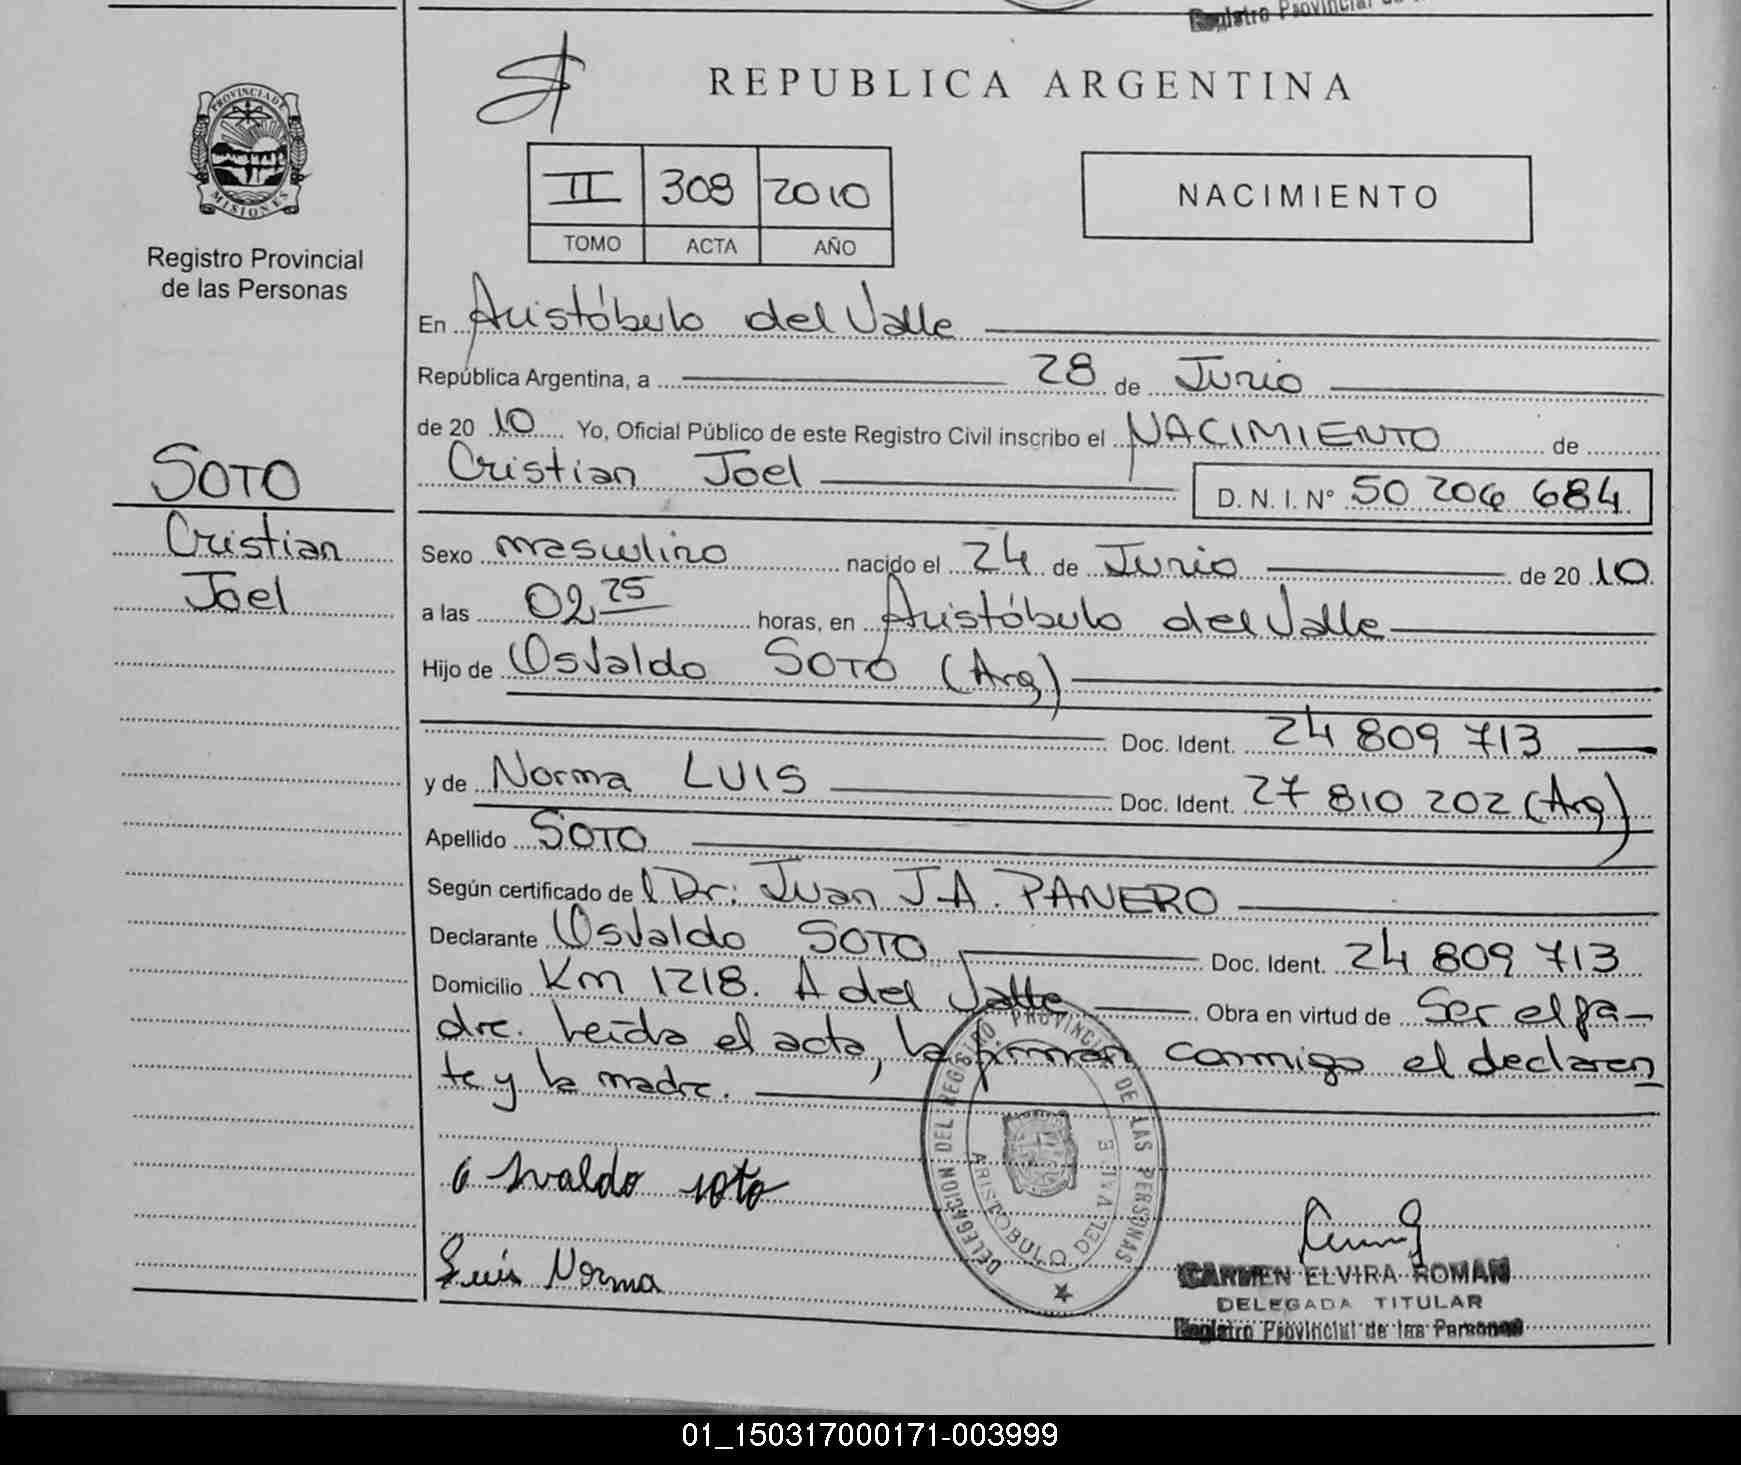 Registro Provincial de
REPUBLICA ARGENTINA
PROVINCIA DE
MISIONES
II 308 2010
TOMO ACTA AÑO
NACIMIENTO
Registro Provincial
de las Personas
En Aristóbulo del Valle
República Argentina, a 28 de Junio
de 20 10 Yo, Oficial Público de este Registro Civil inscribo el NACIMIENTO de
Cristian Joel D. N. I. N° 50 206 684
SOTO
Cristian
Joel
Sexo masculino nacido el 24 de Junio de 20 10
a las 02,25 horas, en Aristóbulo del Valle
Hijo de Osvaldo SOTO (Arg)
Doc. Ident. 24 809 713
y de Norma LUIS Doc. Ident. 27 810 202 (Arg)
Apellido SOTO
Según certificado de l Dr: Juan J.A. PANERO
Declarante Osvaldo SOTO Doc. Ident. 24 809 713
Domicilio Km 1218. A del Valle Obra en virtud de Ser el pa-
dre. Leída el acta, la firman conmigo el declaran
te y la madre.
DELEGACION DEL REGISTRO PROVINCIAL DE LAS PERSONAS
ARISTOBULO DEL VALLE
osvaldo soto
Luis Norma
CARMEN ELVIRA ROMAN
DELEGADA TITULAR
Registro Provincial de las Personas
01_150317000171-003999